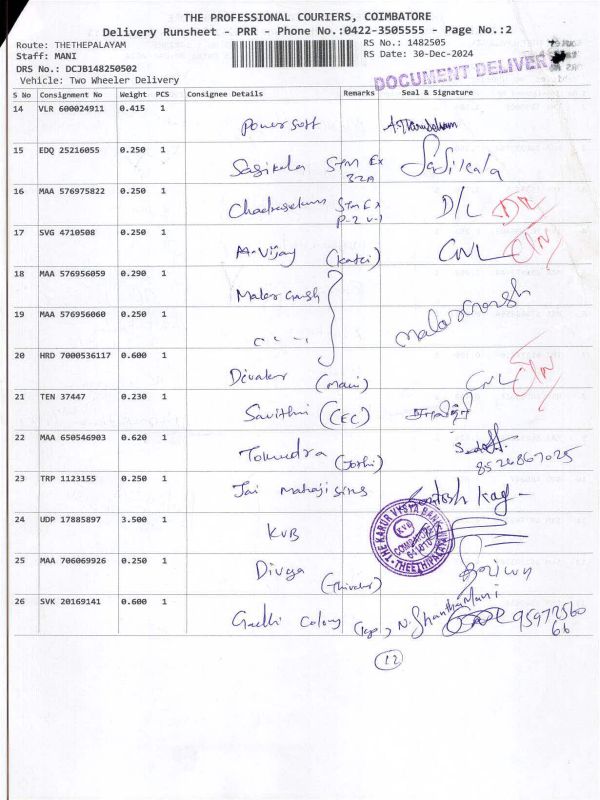 THE PROFESSIONAL COURIERS, COIMBATORE
Delivery Runsheet - PRR - Phone No.:0422-3505555 - Page No.:2
Route: THETHEPALAYAM RS No.: 1482505
Staff: MANI RS Date: 30-Dec-2024
DRS No.: DCJB148250502
Vehicle: Two Wheeler Delivery
DOCUMENT DELIVER
S No Consignment No Weight PCS Consignee Details Remarks Seal & Signature
14 VLR 600024911 0.415 1
Power soft
15 EDQ 25216055 0.250 1
Sasikala Stm Ex Sasikala
32A
16 MAA 576975822 0.250 1
Stm Ex D/L
P-2 V-1
17 SVG 4710508 0.250 1
A-Vijay CNL
18 MAA 576956059 0.290 1
19 MAA 576956060 0.250 1
20 HRD 7000536117 0.600 1
Divakar (Mani) CNL
21 TEN 37447 0.230 1
Savithri (CEC) சாவித்ரி
22 MAA 650546903 0.620 1
(Jothi)
8526867025
23 TRP 1123155 0.250 1
Jai Santosh
24 UDP 17885897 3.500 1
KVB
THE KARUR VYSYA BANK
KVB
COIMBATORE
THEETHIPALAYAM
25 MAA 706069926 0.250 1
Divya
26 SVK 20169141 0.600 1
Colony N. Shanthamani
95972560
66
12